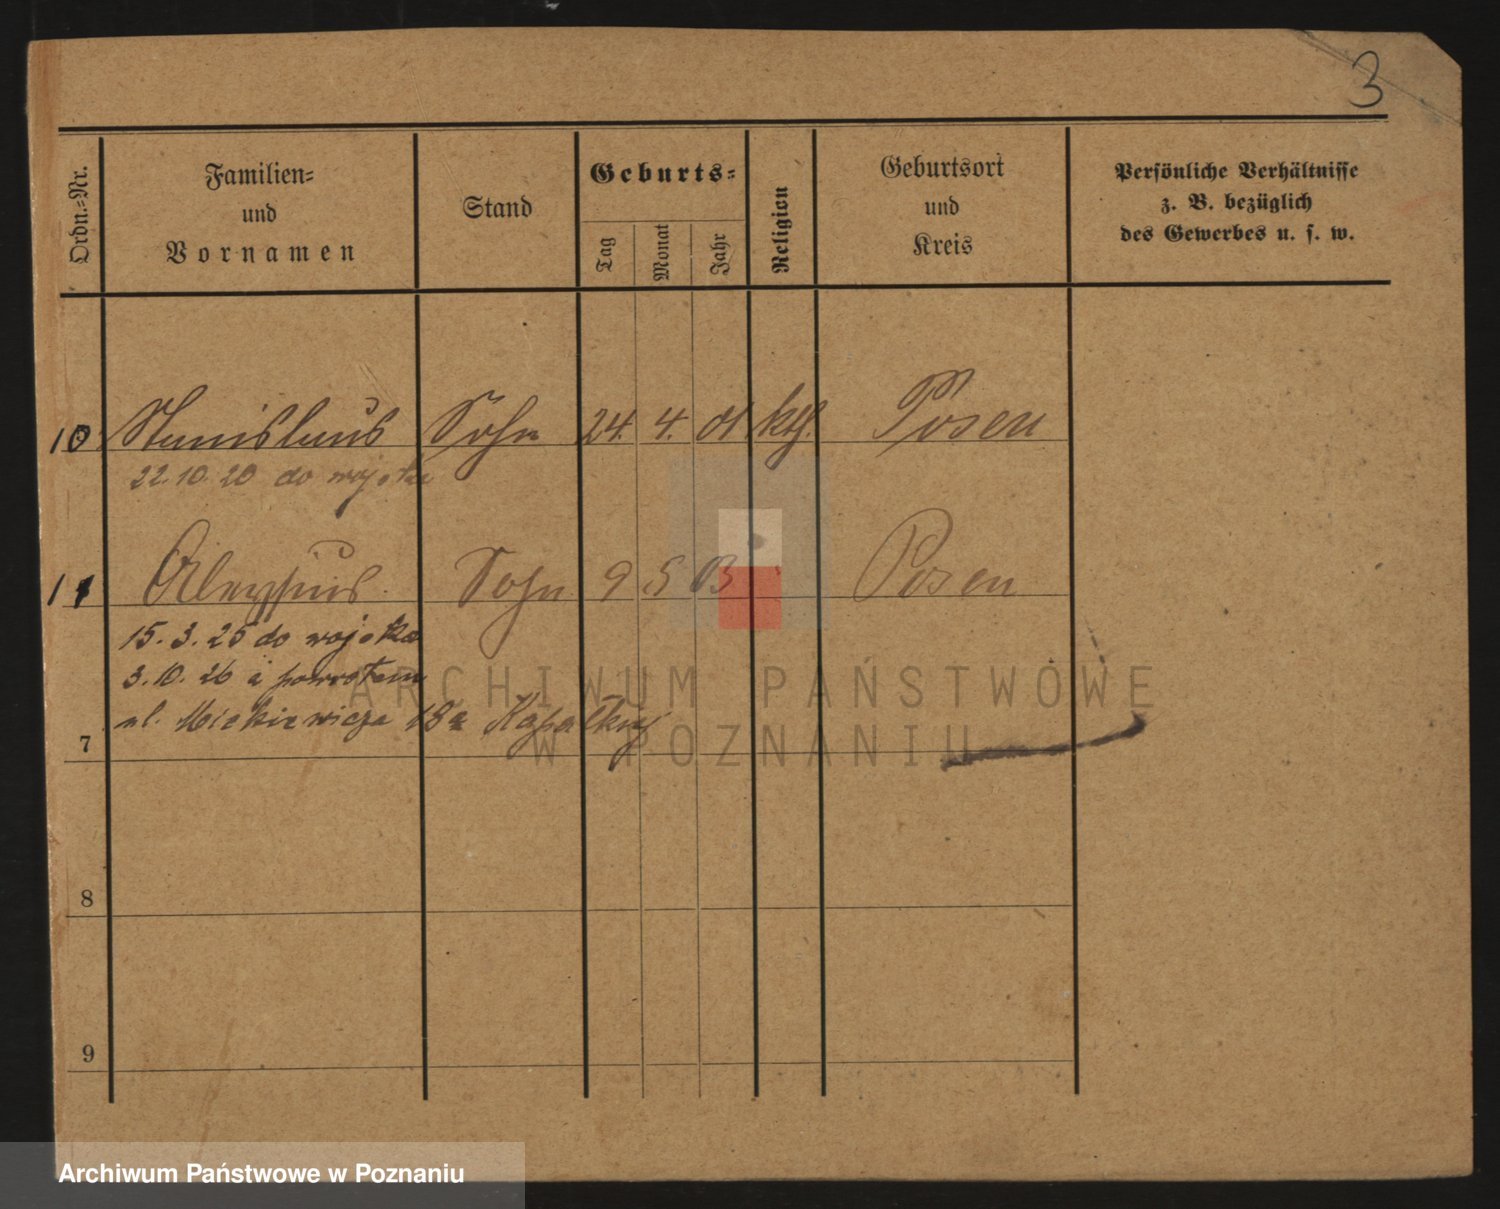 3
Ordn.-Nr.
Familien-
und
Vornamen
Stand
Geburts-
Tag
Monat
Jahr
Religion
Geburtsort
und
Kreis
Persönliche Verhältnisse
z. B. bezüglich
des Gewerbes u. s. w.
10 Stanislaus Sohn 24. 4. 01 kth. Posen
22.10.20 do wojska
11 Sohn 9 5 03 Posen
15.3.25 do wojska
3.10.26 powrotem
ul. Mickiewicza 18a
7
8
9
ARCHIWUM PAŃSTWOWE
W POZNANIU
Archiwum Państwowe w Poznaniu